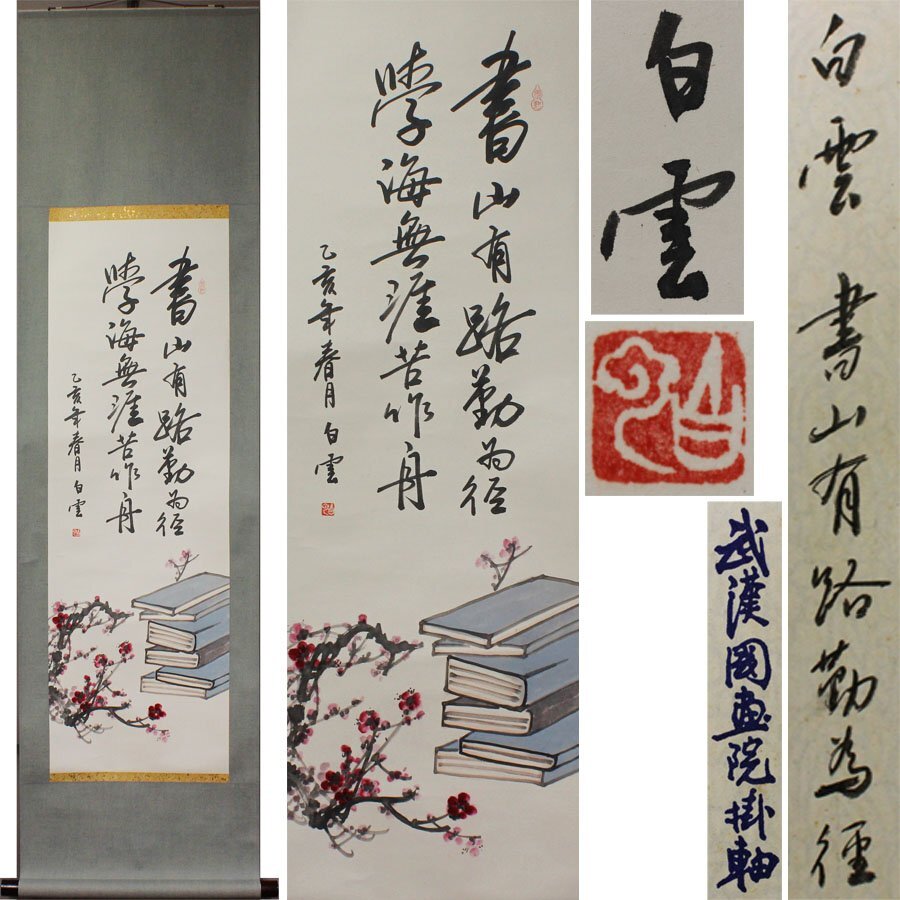 書山有路勤為径
學海無涯苦作舟
乙亥年春月 白雲
書山有路勤為径
學海無涯苦作舟
乙亥年春月 白雲
白雲
武漢國画院掛軸
白雲 書山有路勤為徑